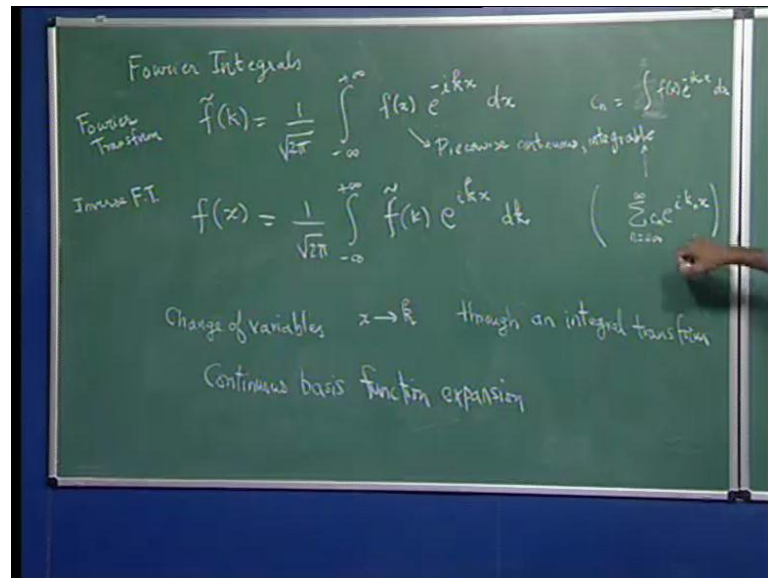 Fourier Integrals
Fourier Transform f̃(k) = 1/√2π ∫_{-∞}^{+∞} f(x) e^{-ikx} dx
c_n = ∫ f(x) e^{-ik_n x} dx
↘ Piecewise continuous, integrable
Inverse F.T. f(x) = 1/√2π ∫_{-∞}^{+∞} f̃(k) e^{ikx} dk
( ∑_{n=-∞}^{∞} c_n e^{ik_n x} )
Change of variables x → k through an integral transform
Continuous basis function expansion